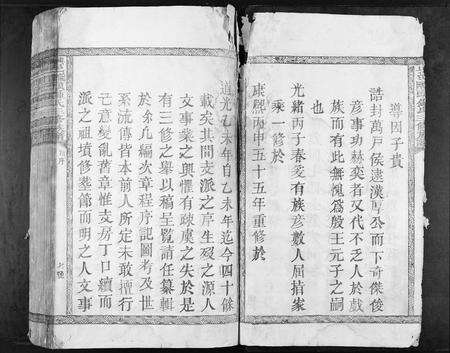 導因子貴
誥封萬戶侯逮漢 公而下奇傑俊
彥事功赫奕者又代不乏人於戲
族而有此無愧為殷王元子之嗣
也
光緒丙子春爰有族彥數人屈指家
乘一修於
康熙丙申五十五年重修於
道光乙未年自乙未年迄今四十餘
載矣其間支派之亨生歿之源人
文事業之興惟有疎虞之失於是
有三修之舉以稿呈覽請任纂輯
於余凡編次章程序記圖考及世
系流傳皆本前人所定未敢擅行
己意變亂舊章惟支房丁口續而
派之祖墳修塋篩而明之人文事